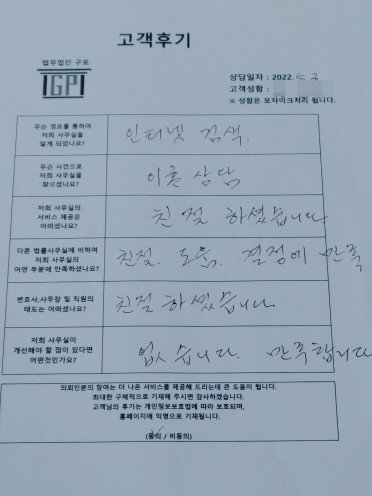 고객후기
법무법인 구포
GP
상담일자 : 2022.
고객성함 :
※ 성함은 모자이크처리 됩니다.
무슨 경로를 통하여
저희 사무실을
알게 되었나요?
인터넷 검색.
무슨 사건으로
저희 사무실을
찾으셨나요?
이혼 상담
저희 사무실의
서비스 제공은
어떠셨나요?
친절 하셨습니다
다른 법률사무실에 비하여
저희 사무실의
어떤 부분에 만족하셨나요?
친절. 도움. 결정에 만족
변호사,사무장 및 직원의
태도는 어떠셨나요?
친절하셨습니다
저희 사무실이
개선해야 할 점이 있다면
어떤것인가요?
없습니다. 만족합니다
의뢰인분의 참여는 더 나은 서비스를 제공해 드리는데 큰 도움이 됩니다.
최대한 구체적으로 기재해 주시면 감사하겠습니다.
고객님의 후기는 개인정보보호법에 따라 보호되며,
홈페이지에 익명으로 기재됩니다.
(동의 / 비동의)